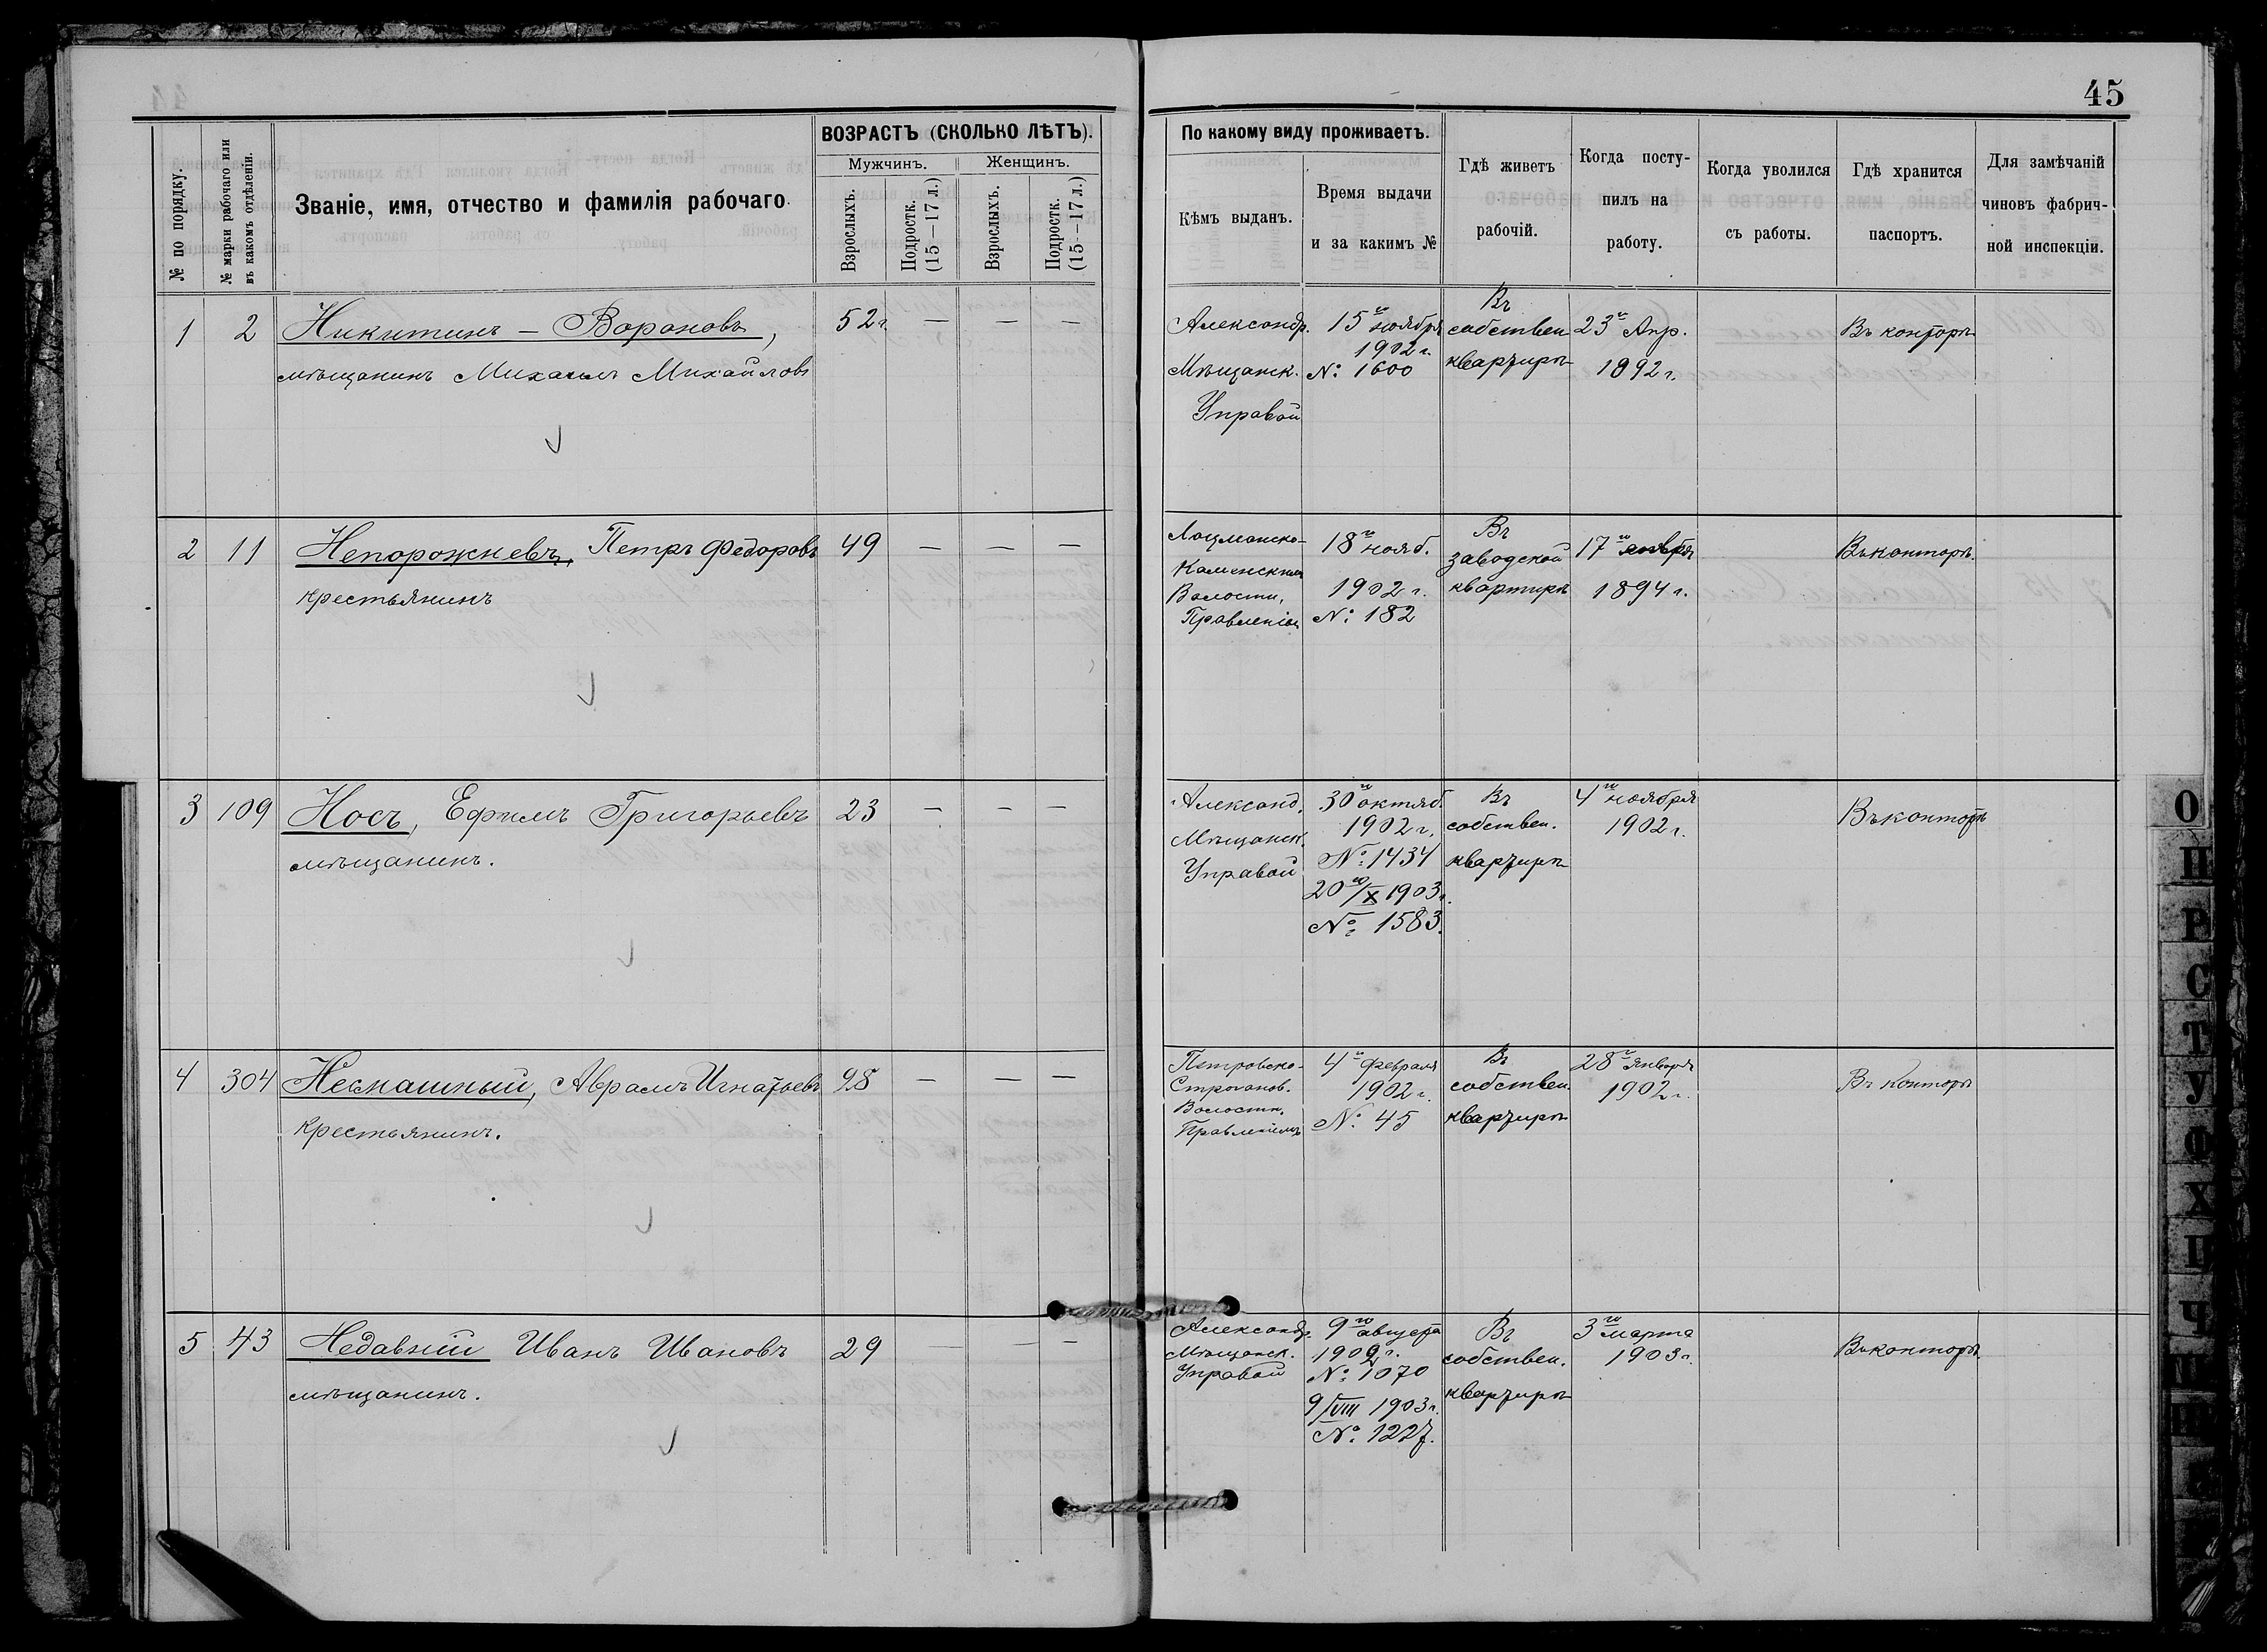 45
№ по порядку.
№ марки рабочаго или
въ какомъ отдѣленіи.
Званіе, имя, отчество и фамилія рабочаго.
ВОЗРАСТЪ (СКОЛЬКО ЛѢТЪ).
Мужчинъ.
Женщинъ.
Взрослыхъ.
Подростк.
(15—17 л.)
Взрослыхъ.
Подростк.
(15—17 л.)
По какому виду проживаетъ.
Кѣмъ выданъ.
Время выдачи
и за какимъ №
Гдѣ живетъ
рабочій.
Когда посту-
пилъ на
работу.
Когда уволился
съ работы.
Гдѣ хранится
паспортъ.
Для замѣчаній
чиновъ фабрич-
ной инспекціи.
1
2
Никитинъ — Вороновъ,
мѣщанинъ Михаилъ Михайловъ
52 г.
— — —
Александр.
Мѣщанск.
Управой
15го ноября
1902 г.
№ 1600
Въ
собствен.
квартирѣ
23го Апр.
1892 г.
Въ конторѣ
2
11
Непорожневъ, Петръ Федоровъ
крестьянинъ
49
— — —
Лоцманско-
Каменскимъ
Волостн.
Правленіем
18го нояб.
1902 г.
№ 182
Въ
заводской
квартирѣ
17го января
1894 г.
Въ конторѣ
3
109
Носъ, Ефимъ Григорьевъ
мѣщанинъ.
23
— — —
Александ.
Мѣщанск.
Управой
30го октяб.
1902 г.
№ 1434
20го/X 1903 г.
№ 1583.
Въ
собствен.
квартирѣ
4го ноября
1902 г.
Въ конторѣ
4
304
Несмашный, Аврамъ Игнатьевъ
крестьянинъ.
28
— — —
Петровско-
Строганов.
Волостн.
Правленіемъ
4го февраля
1902 г.
№ 45
Въ
собствен.
квартирѣ
28го января
1902 г.
Въ конторѣ
5
43
Недавній Иванъ Ивановъ
мѣщанинъ.
29
— — —
Александр.
Мѣщанск.
Управой
9го августа
1902 г.
№ 1070
9/VIII 1903 г.
№ 1227.
Въ
собствен.
квартирѣ
3го марта
1903 г.
Въ конторѣ
О
П
Р
С
Т
У
Ф
Х
Ц
Ч